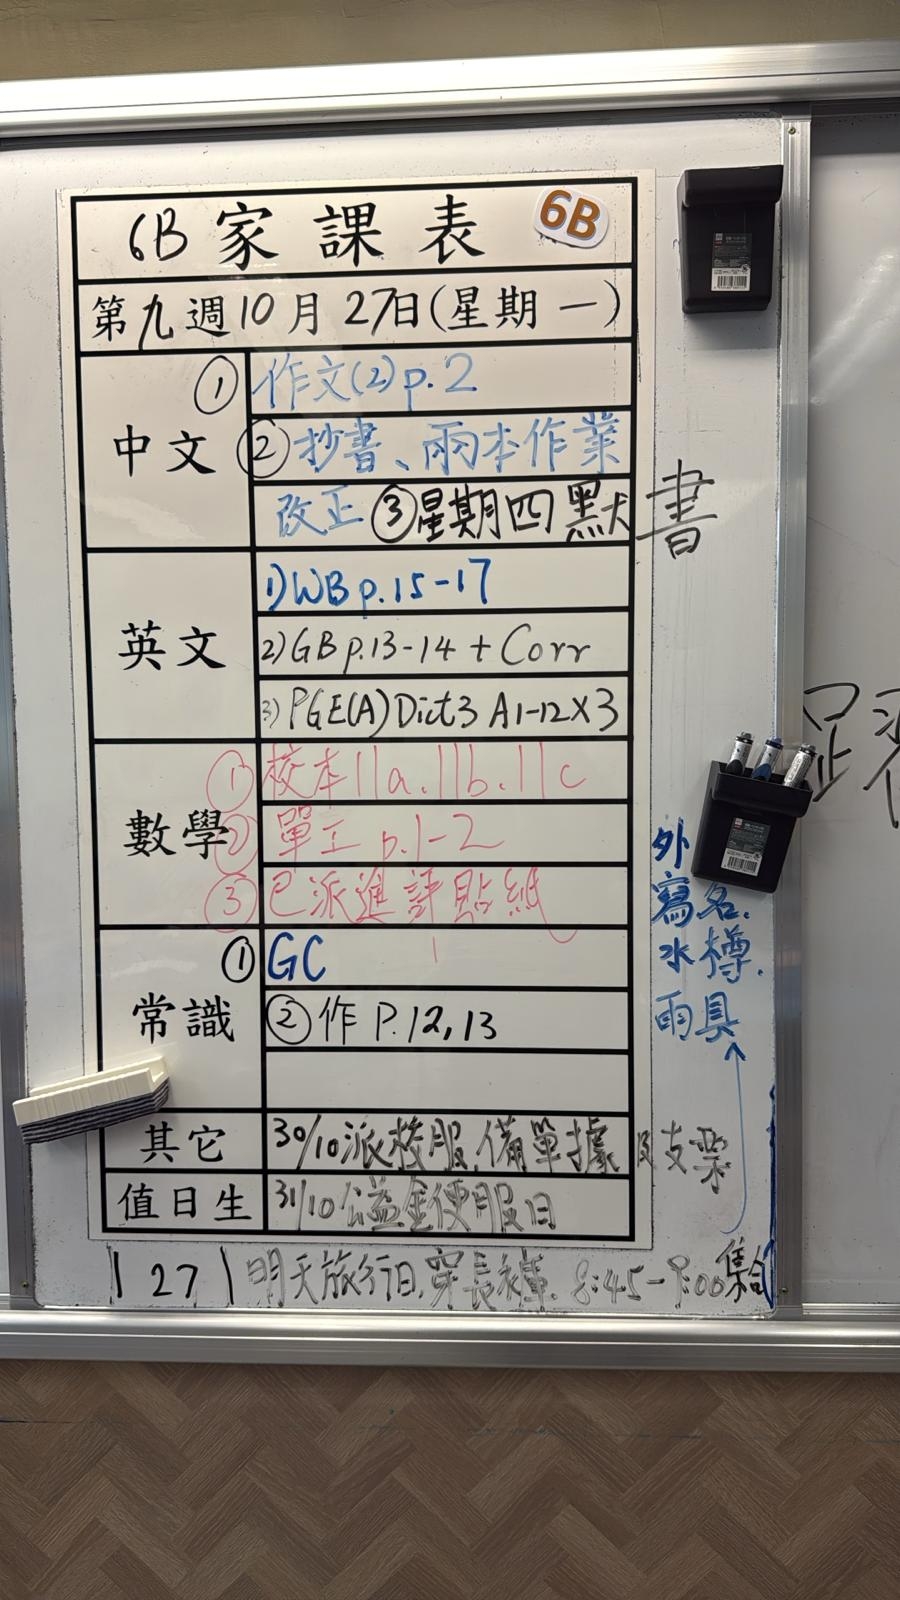 6B 家課表 6B
第九週10月27日(星期一)
中文
① 作文(2)p.2
② 抄書、兩本作業
改正 ③星期四默書
英文
1)WB p.15-17
2)GB p.13-14 + Corr
3)PGE(A)Dict3 A1-12X3
數學
①校本11a.11b.11c
② 單工 p.1-2
③ 已派進評貼紙
常識
① GC
②作 P.12,13
其它
30/10派校服,備單據及支票
值日生
31/10公益金便服日
27
明天旅行日,穿長褲.8:45-9:00集合
外
寫名.
水樽.
雨具